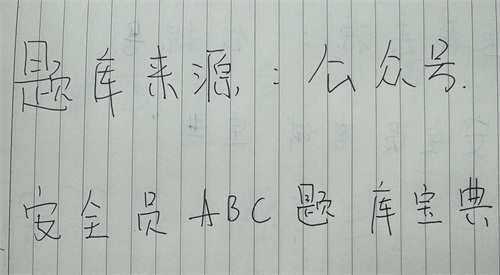 题库来源:公众号.
安全员ABC题库宝典